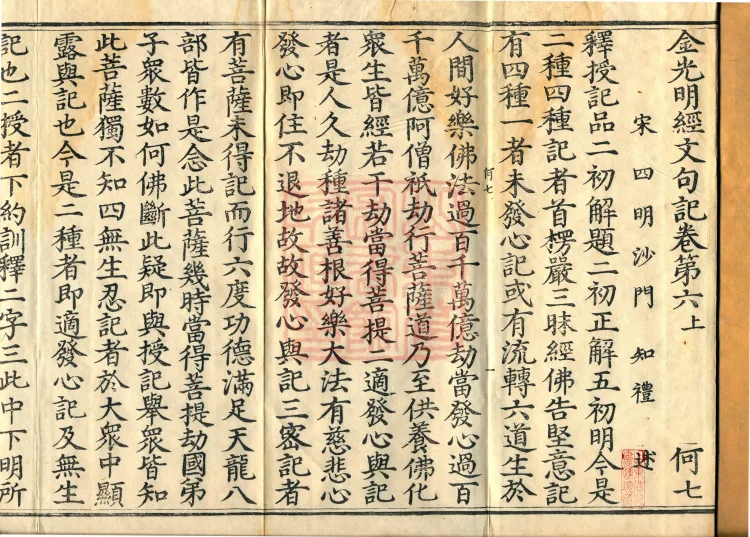 金光明經文句記卷第六上 何七
宋 四明沙門 知禮 述
釋授記品二初解題二初正解五初明今是
二種四種記者首楞嚴三昧經佛告堅意記
有四種一者未發心記或有流轉六道生於
何七 一
人間好樂佛法過百千萬億劫當發心過百
千萬億阿僧祇劫行菩薩道乃至供養佛化
眾生皆經若干劫當得菩提二適發心與記
者是人久劫種諸善根好樂大法有慈悲心
發心即住不退地故故發心與記三密記者
有菩薩未得記而行六度功德滿足天龍八
部皆作是念此菩薩幾時當得菩提劫國弟
子眾數如何佛斷此疑即與授記舉眾皆知
此菩薩獨不知四無生忍記者於大眾中顯
露與記也今是二種者即適發心記及無生
記也二授者下約訓釋二字三此中下明所